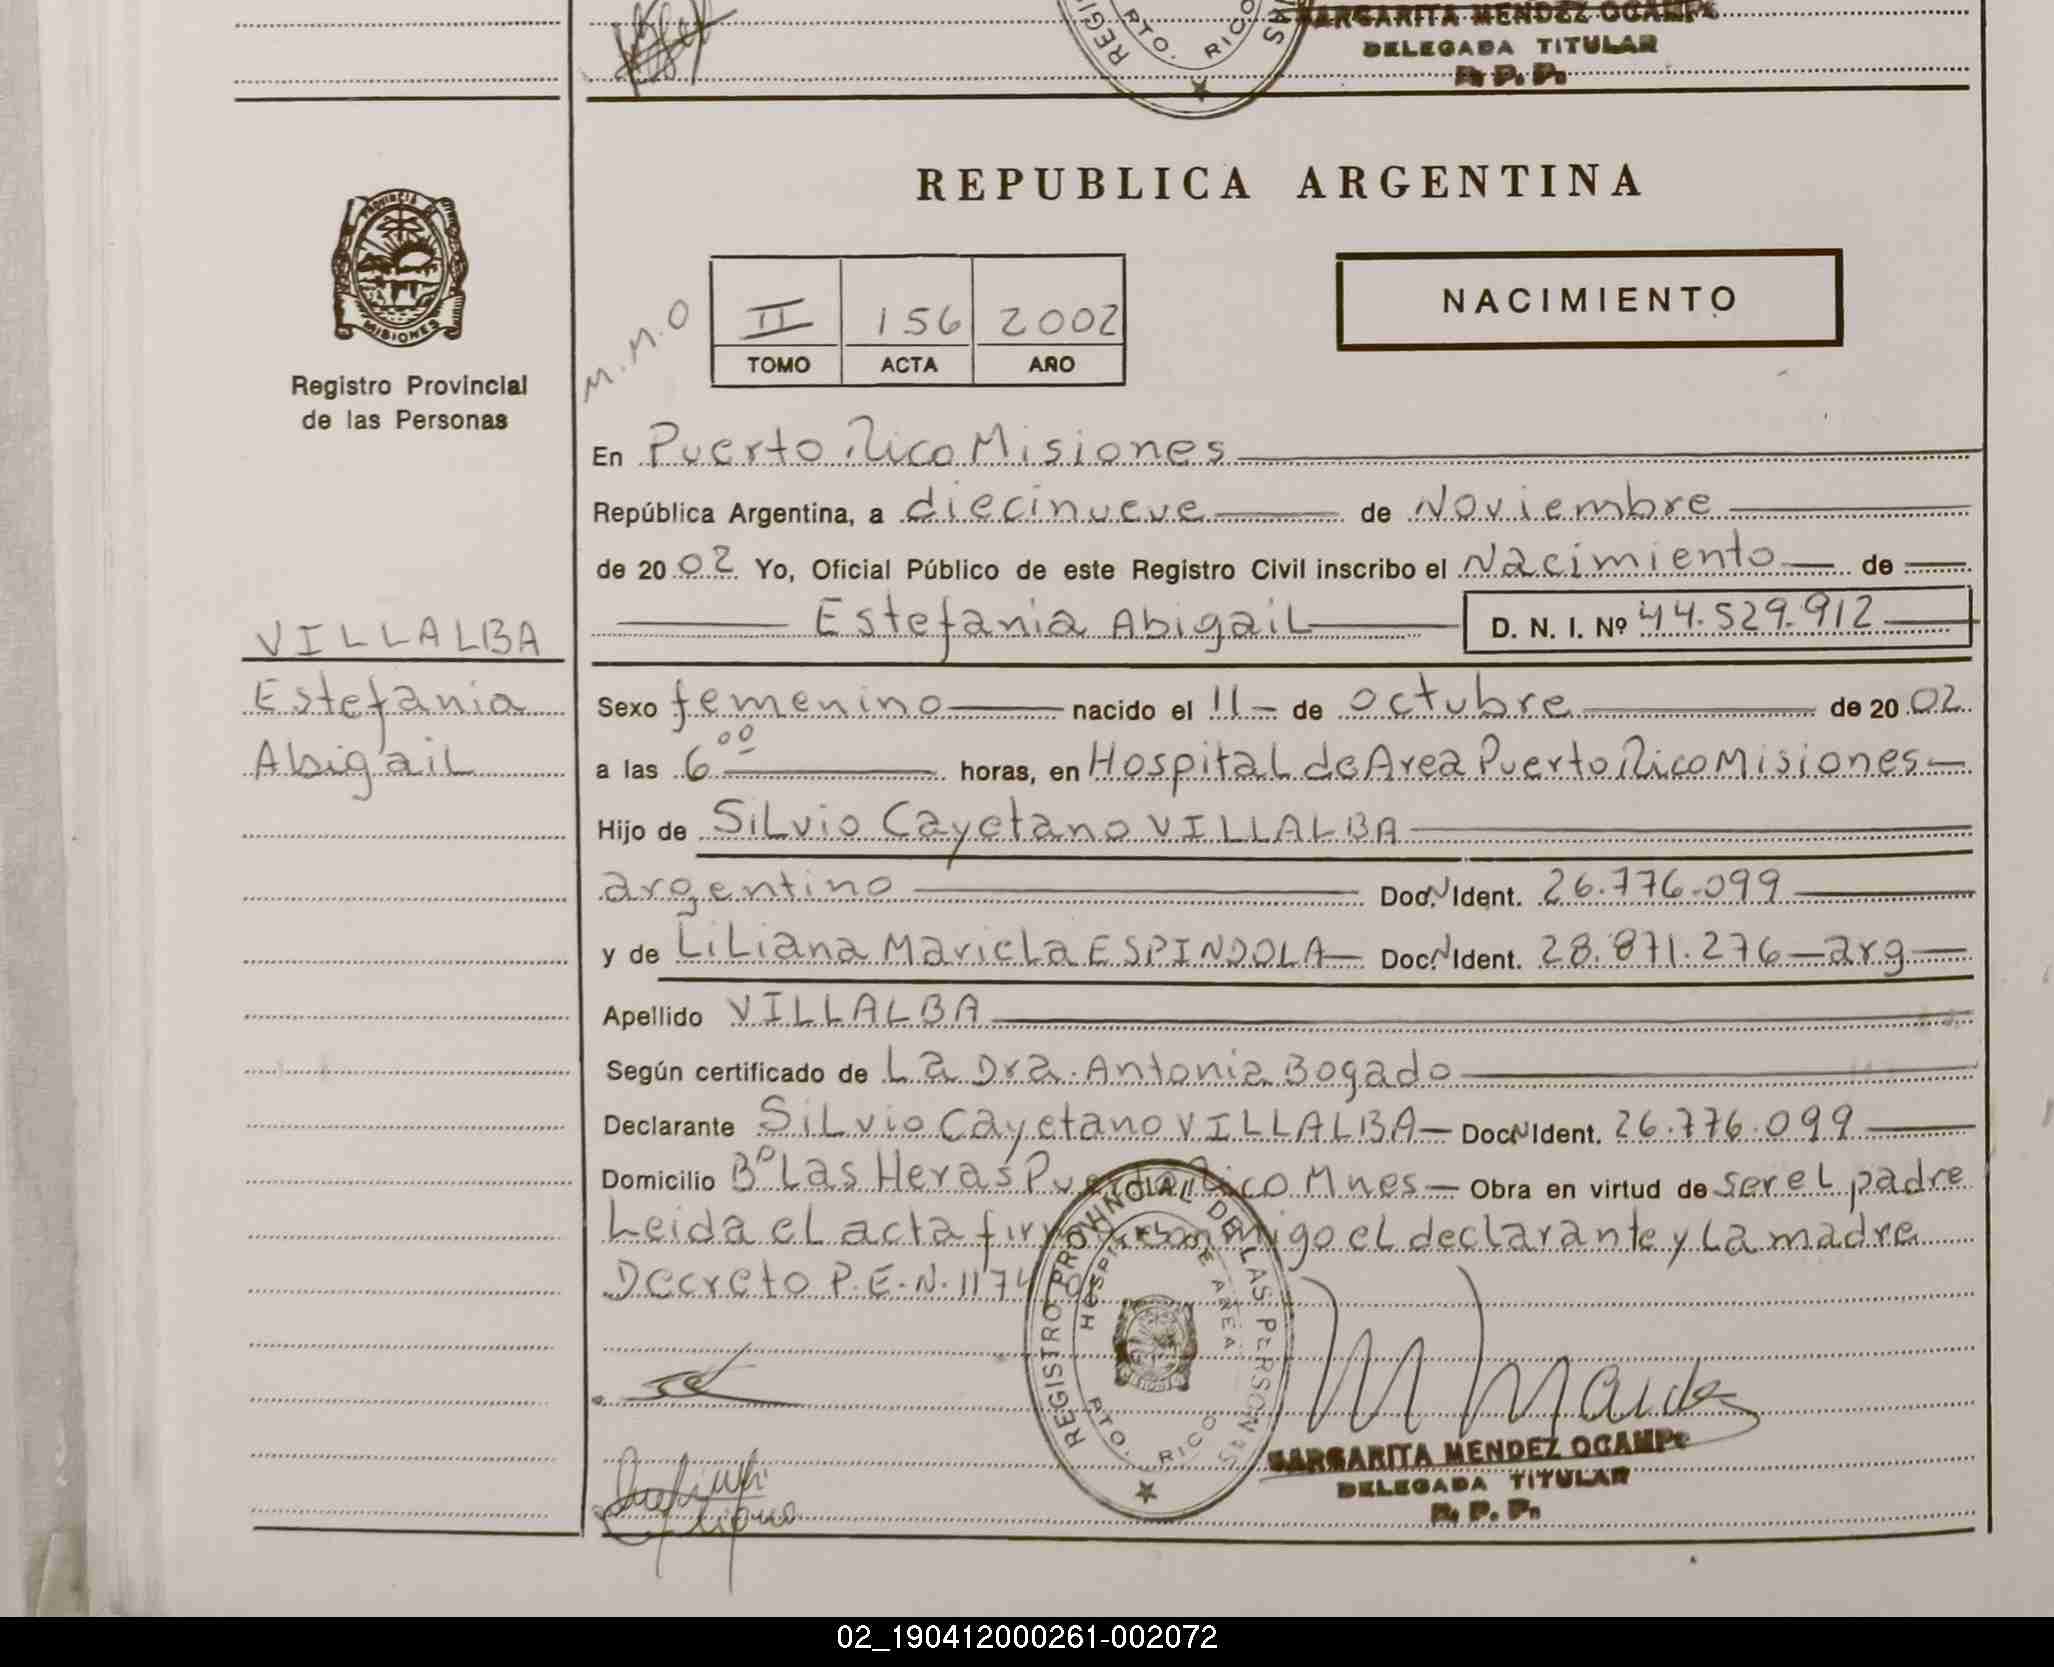 MARGARITA MENDEZ OCAMPO
DELEGADA TITULAR
R. P. P.
REGIS
RTO. RICO
PROVINCIA DE
MISIONES
Registro Provincial
de las Personas
REPUBLICA ARGENTINA
M.M.O
II 156 2002
TOMO ACTA AÑO
NACIMIENTO
En Puerto Rico Misiones
República Argentina, a diecinueve de Noviembre
de 20 02 Yo, Oficial Público de este Registro Civil inscribo el Nacimiento de
Estefania Abigail D. N. I. Nº 44.529.912
VILLALBA
Estefania
Abigail
Sexo femenino nacido el 11 de octubre de 20 02
a las 6 00 horas, en Hospital de Area Puerto Rico Misiones
Hijo de Silvio Cayetano VILLALBA
argentino Doc. N Ident. 26.776.099
y de Liliana Mariela ESPINDOLA Doc. N Ident. 28.871.276 arg
Apellido VILLALBA
Según certificado de La Dra. Antonia Bogado
Declarante Silvio Cayetano VILLALBA Doc N Ident. 26.776.099
Domicilio Bº Las Heras Puerto Rico Mnes Obra en virtud de ser el padre
Leida el acta firma conmigo el declarante y la madre
Decreto P.E.N. 1174
REGISTRO PROVINCIAL DE LAS PERSONAS
HOSPITAL DE AREA
PTO. RICO
MARGARITA MENDEZ OCAMPO
DELEGADA TITULAR
R. P. P.
02_190412000261-002072